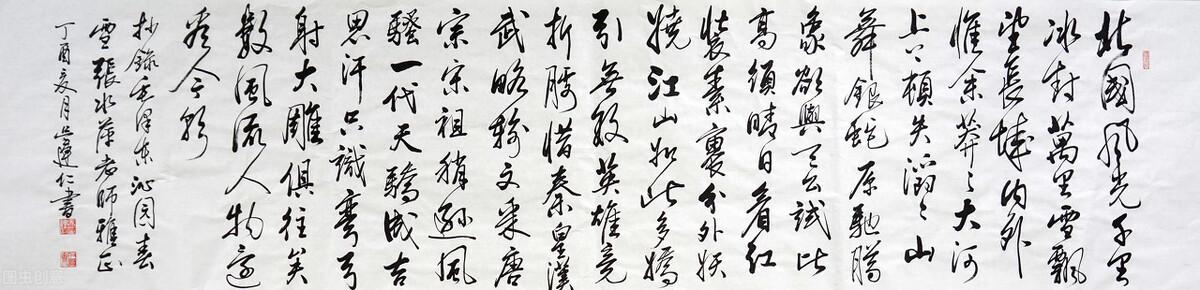 北國風光千里
冰封萬里雪飄
望長城内外
惟余莽々大河
上下頓失滔々山
舞銀蛇原馳臘
象欲與天公試比
高須晴日看紅
裝素裹分外妖
嬈江山如此多嬌
引無數英雄竞
折腰惜秦皇漢
武略輸文采唐
宗宋祖稍遜風
騷一代天驕成吉
思汗只識彎弓
射大雕俱往矣
數風流人物還
看今朝
抄録毛澤東沁園春
雪張水萍老師雅正
丁酉夏月達仁書
图虫创意